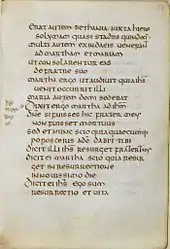 Erat autem bethania iuxta hiero
solymam quasi stadiis quindeci
multi autem ex iudaeis venerant
ad martham et mariam
ut consolarentur eas
de fratre suo
martha ergo ut audivit quia ihs
venit occurrit illi
maria autem domi sedebat
Dixit ergo martha ad ihm
Dne si fuisses hic frater meus
non fuisset mortuus
sed et nunc scio quia quaecumq
poposceris a do dabit tibi ds
Dicit illi ihs resurget frater tuus
Dicit ei martha scio quia resur
get in resurrectione
in novissimo die
Dicit ei ihs ego sum
resurrectio et vita